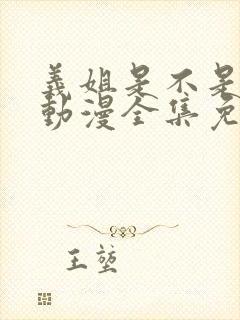 義姐是不是
動漫全集免
王堃